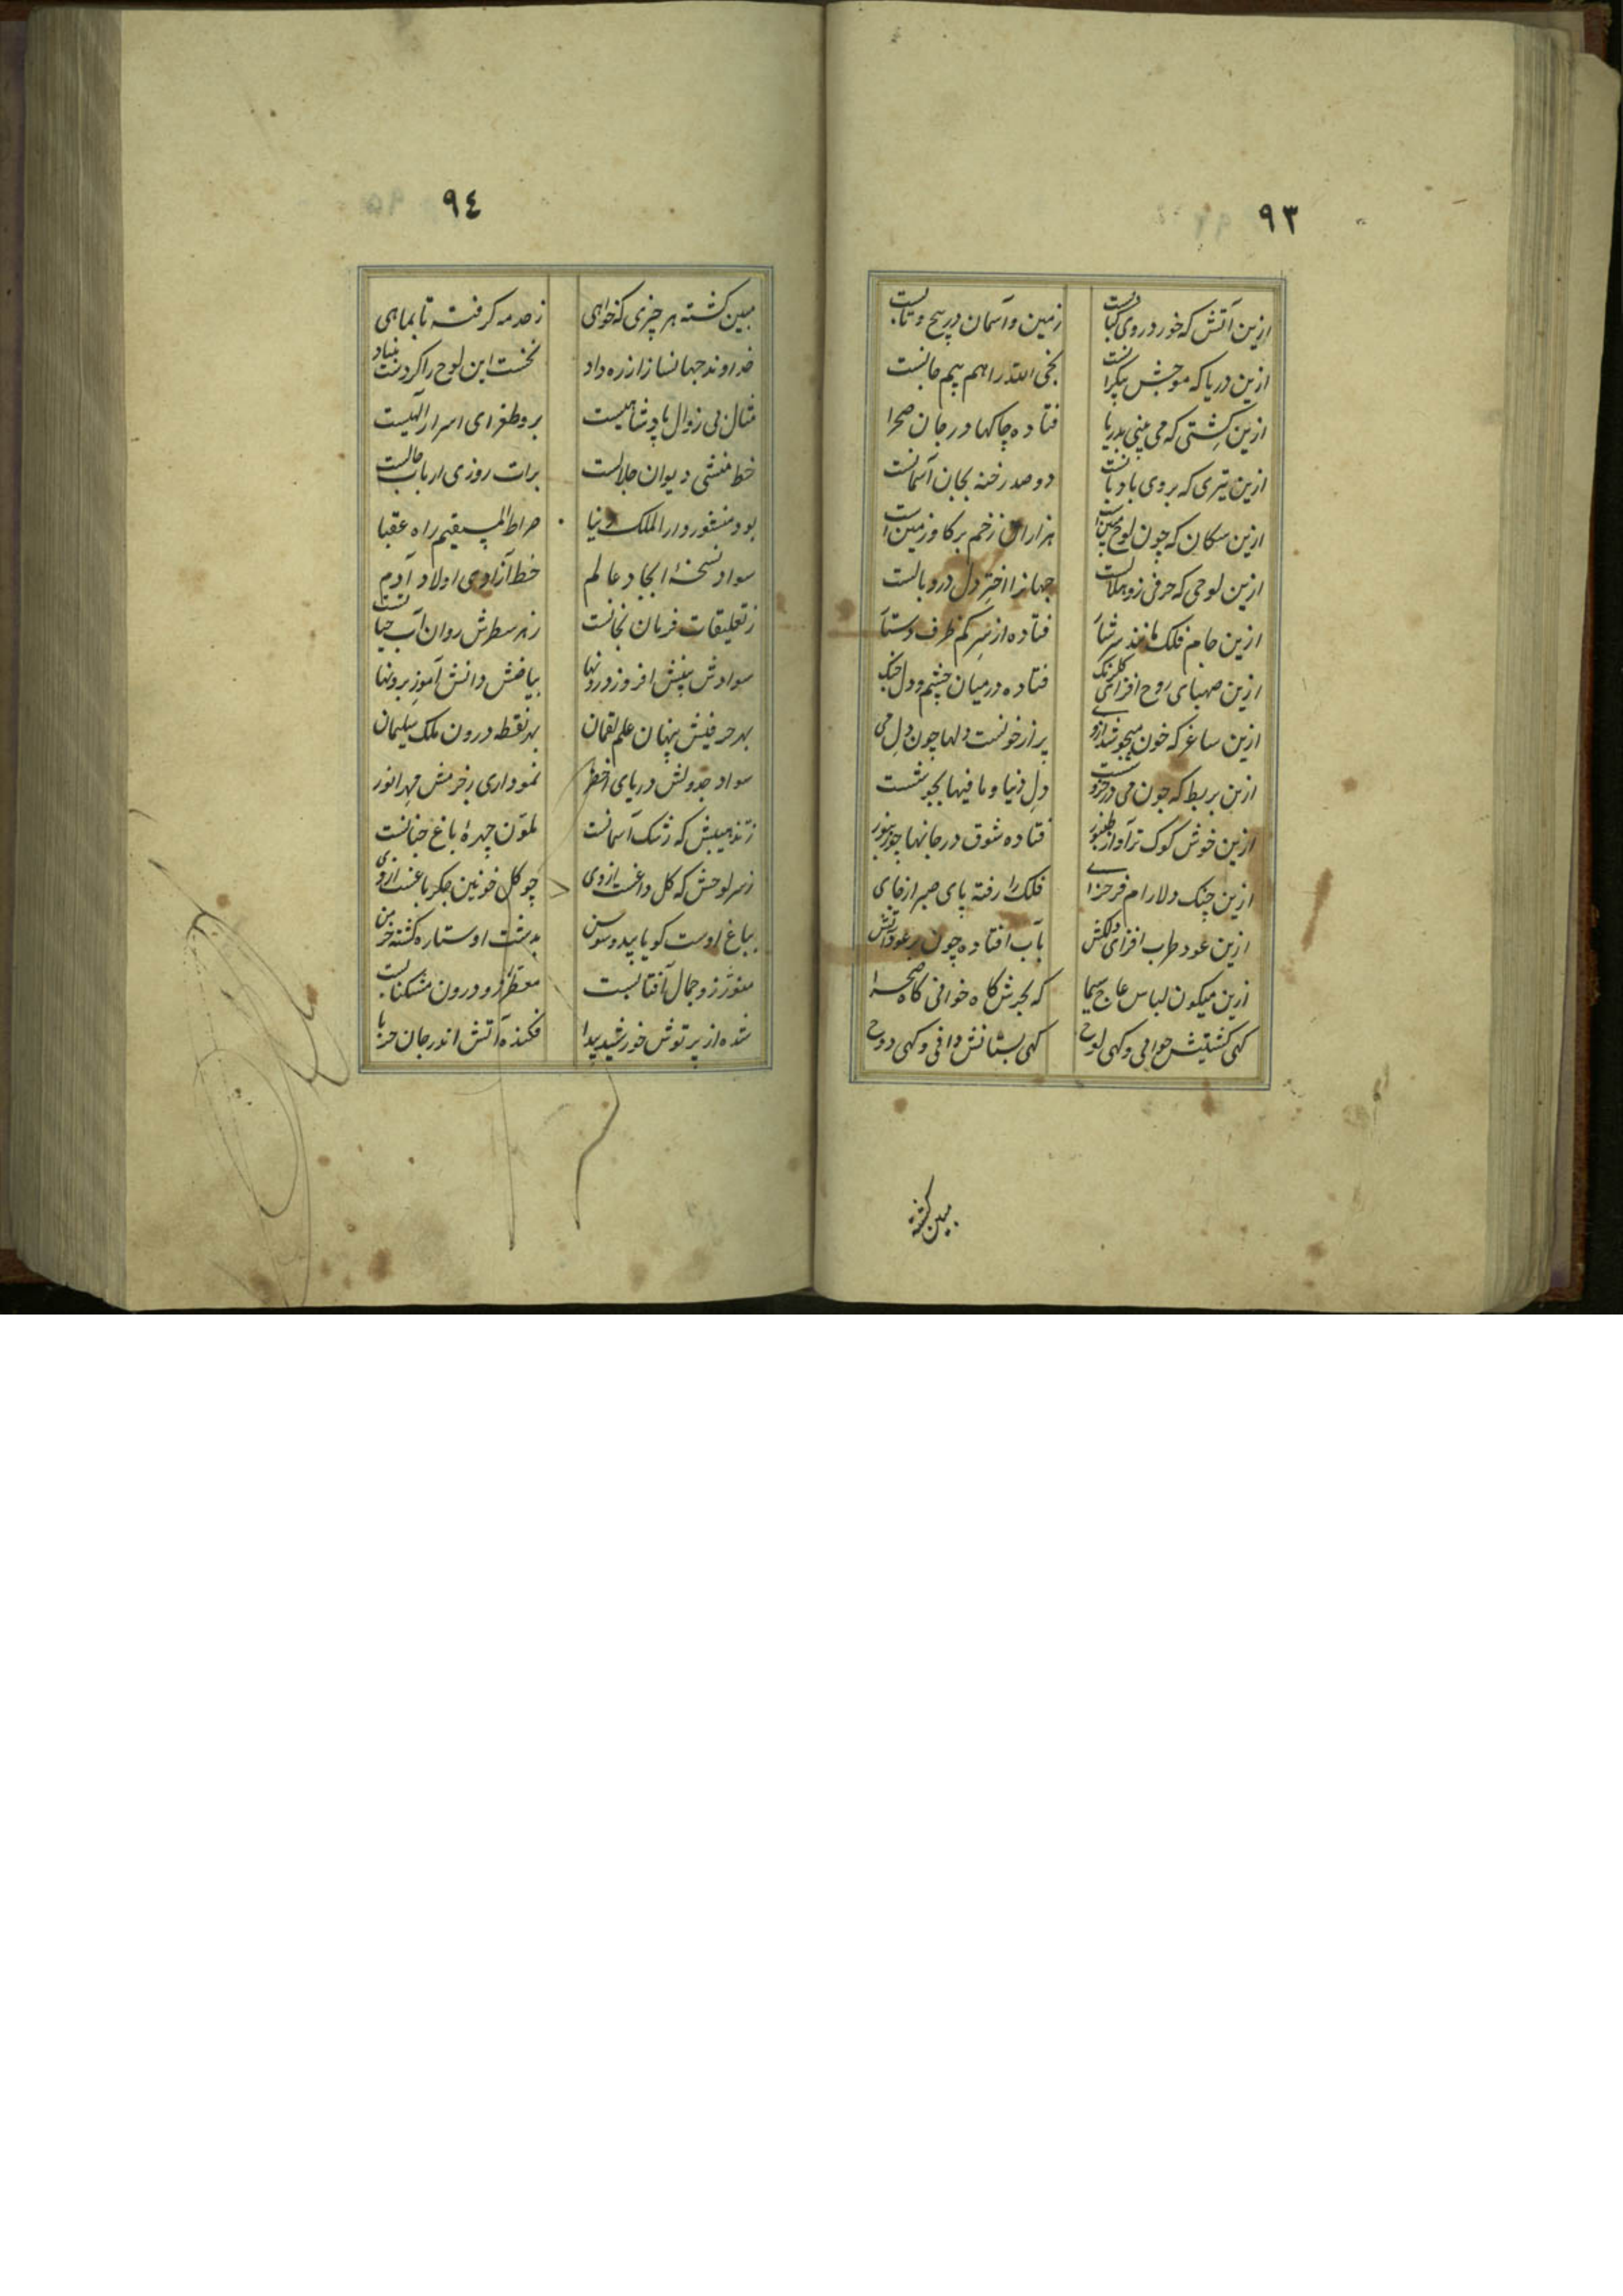 ۹۳
ازین آتش که خور در وی کبابست زمین و آسمان در پیچ و تابست
ازین دریا که موجش بیکرانست نجی الله را هم بیم جانست
ازین کشتی که می بینی بدریا فتاده چاکها در جان صحرا
ازین تیری که بروی بادبانست دو صد رخنه بجان آسمانست
ازین سکان که چون لوح هزاران زخم بر کاو زمین است
ازین لوحی که حرفی زو هلالست جهانرا اختر دل در وبالست
ازین جام فلک مانند سرشار فتاده از سر کم ظرف دستار
ازین صهبای روح افزای کلرنک فتاده در میان چشم و دل جنک
ازین ساغر که خون میجوشد از وی پر از خونست دلها چون دل می
ازین بربط که چون می در خروشست دل دنیا و مافیها بجوشست
ازین خوش کوک تر آواز طنبور فتاده شوق در جانها چو زنبور
ازین چنک دلارام فرحزای فلک را رفته پای صبر از جای
ازین عود طرب افزای دلکش بآب افتاده چون بر عود آتش
ازین میکون لباس عاج سیما که بحرش کاه خوانی کاه صحرا
کهی کشتیش خوانی و کهی لوح کهی بستانش دانی و کهی دوح
مبین کشته
۹٤
مبین کشته هر چیزی که خواهی ز حد مه کرفته تا بماهی
خداوند جهانساز از ره داد نخست این لوح را کردست بنیاد
مثال بی زوال پادشاهیست برو طغرای اسرار الهیست
خط منشی دیوان جلالست برات روزی ارباب حالست
بود منشور دار الملک دنیا صراط المستقیم راه عقبا
سواد نسخهٔ ایجاد عالم خط آزادی اولاد آدم
ز تعلیقات فرمان نجاتست ز هر سطرش روان آب حیاتست
سوادش بینش افروز درونها بیاضش دانش آموز برونها
بهر حرفیش پنهان علم لقمان بهر نقطه درون ملک سلیمان
سواد جدولش دریای اخضر نموداری ز خرمش مهر انور
ز تذهیبش که رشک آسمانست ملون چهرهٔ باغ جنانست
ز سر لوحش که کل داغست از وی چو کل خونین جکر باغست از وی
بباغ اوست کویا بید و سوسن بدشت او ستاره کشته خرمن
منور زو جمال آفتابست معطر زو درون مشکنابست
شده از پرتوش خورشید پیدا فکنده آتش اندر جان حربا